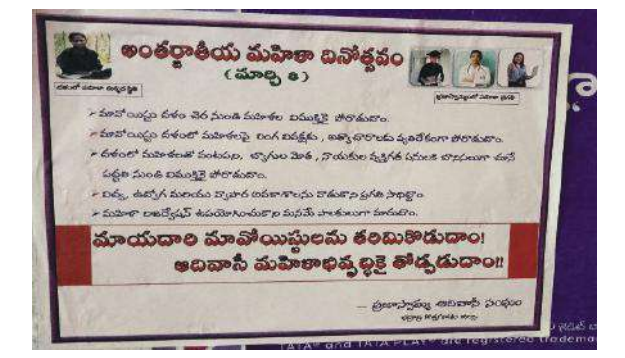 అంతర్జాతీయ మహిళా దినోత్సవం
( మార్చి 8 )
➢ మావోయిస్టు దళం చెర నుండి మహిళల విముక్తికై పోరాడుదాం.
➢ మావోయిస్టు దళంలో మహిళలపై లింగ వివక్షకు , అత్యాచారాలకు వ్యతిరేకంగా పోరాడుదాం.
➢ దళంలో మహిళలతో వంటపని, బ్యాగుల మోత , నాయకుల వ్యక్తిగత పనులకి బానిసలుగా చూసే
పద్ధతి నుంతి విముక్తికై పోరాడుదాం.
➢ విద్య, ఉద్యోగ మరియు వ్యాపార అవకాశాలను వాడుకొని ప్రగతి సాధిద్దాం.
➢ మహిళా రిజర్వేషన్ ఉపయోగించుకొని మనమే పాలకులుగా మారుదాం.
మాయదారి మావోయిస్టులను తరిమికొడుదాం!
ఆదివాసీ మహిళాభివృద్ధికై తోడ్పడుదాం!!
– ప్రజాస్వామ్య ఆదివాసీ సంఘం
TATA® and TATA PLAY® are registered tradema